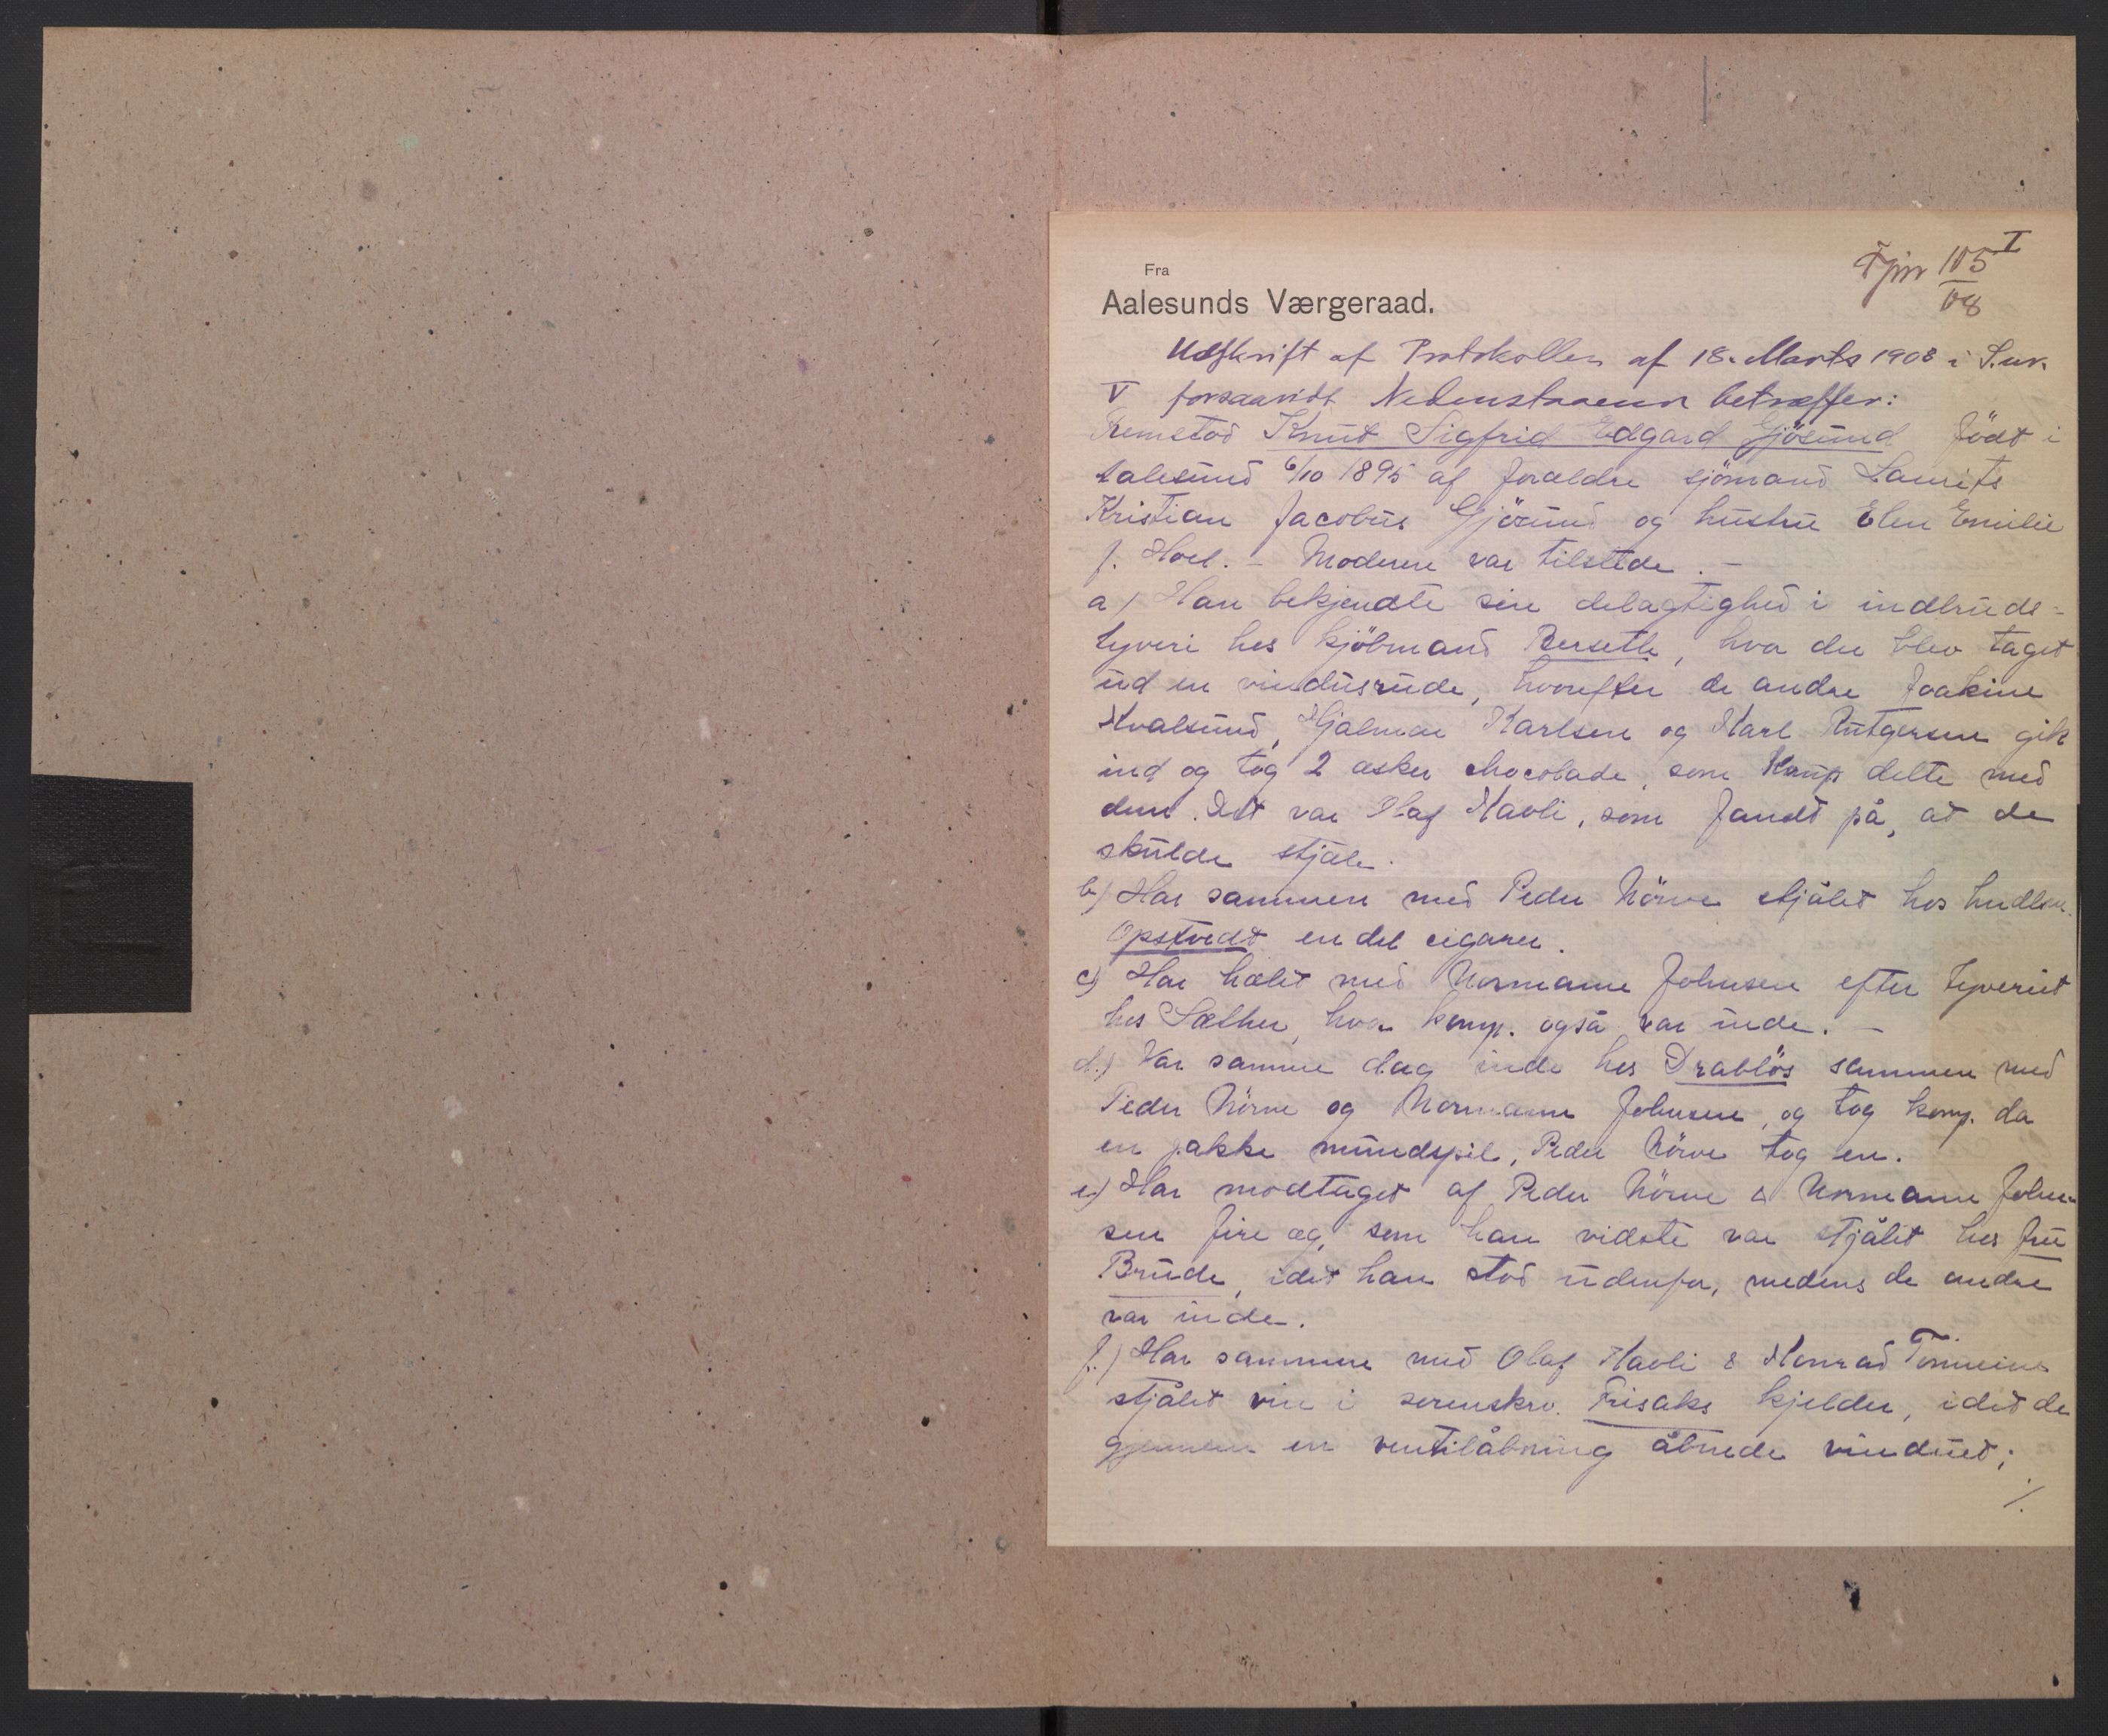 I
Fjnr 105
08
Fra
Aalesunds Værgeraad.
Udskrift af Protokollen af 18. Marts 1908 i S.nr.
V forsaavidt Nedenstaaende betræffer:
Fremstod Knut Sigfrid Edgard Gjösund född i
Aalesund 6/10 1895 af forældre sjömand Laurits
Kristian Jacobus Gjösund og hustru Elen Emilie
f. Hoel. - Moderen var tilstede. -
a) Han bekjendte sin delagtighed i indbruds-
tyveri hos kjöbmand Berseth, hvor der blev taget
ud en vindusrude, hvorefter de andre Joakim
Hvalsund, Hjalmar Karlsen og Karl Rutgersen gik
ind og tog 2 æsker chocolade, som Komp delte med
dem. Det var Olaf Havli, som fandt på, at de
skulde stjæle.
b) Har sammen med Peder Nörve stjålet hos hndlsm.
Opstvedt en del cigarer.
c) Har hælet med Normann Johnsen efter tyveriet
hos Sæther, hvor komp. også var inde. -
d.) Var samme dag inde hos Drablös sammen med
Peder Nörve og Normann Johnsen, og tog komp. da
en pakke mundspil, Peder Nörve tog en.
e.) Har modtaget af Peder Nörve & Normann John-
sen fire æg, som han vidste var stjålet hos fru
Brude, idet han stod udenfor, medens de andre
var inde.
f.) Har sammen med Olaf Havli & Konrad
stjålet vin i sorenskrv. Frisaks kjelder, idet de
gjennem en ventilåbning åbnede vinduet;
/.